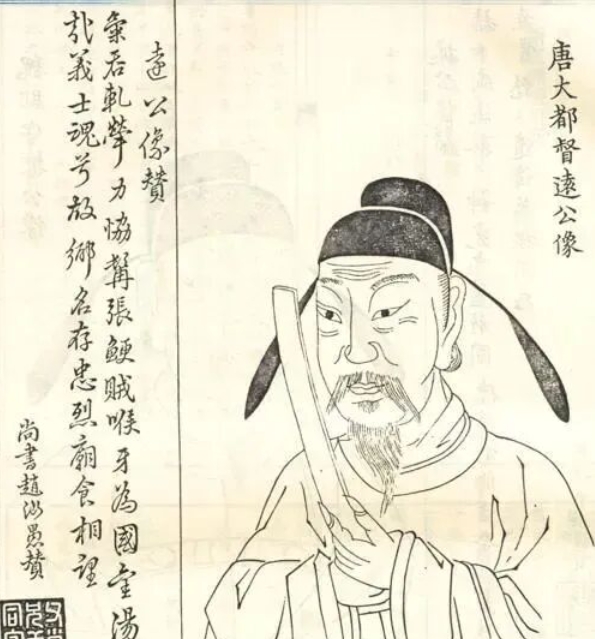 唐大都督遠公像
遠公像贊
氣吞軋犖力協髯張鯁賊喉牙為國金湯
哉義士魂兮故鄉名存忠烈廟食相望
尚書趙汝愚贊